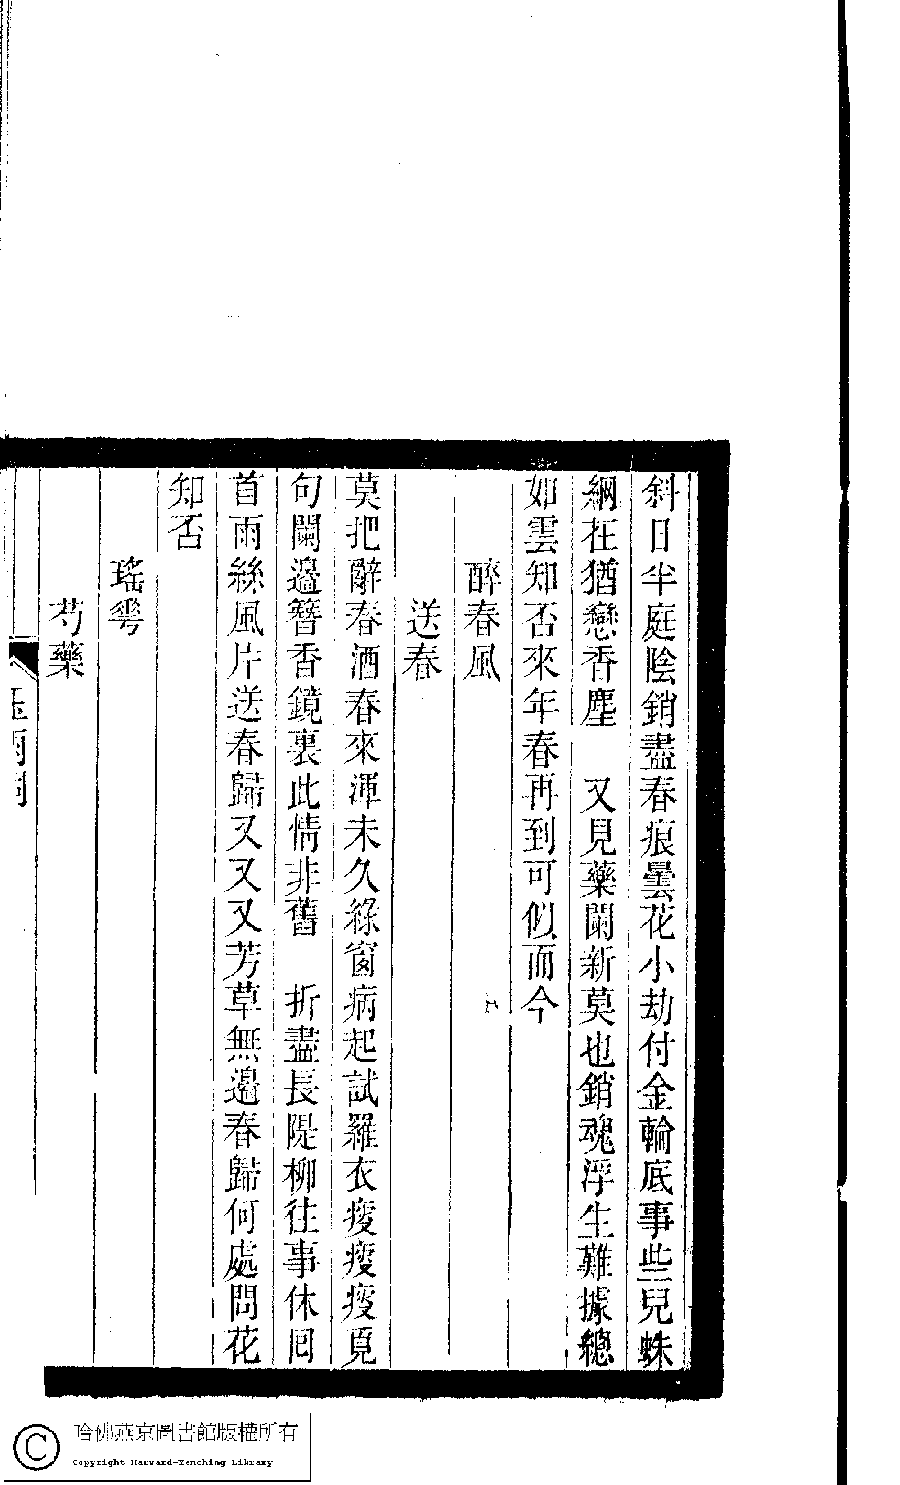 斜日半庭陰銷盡春痕曇花小劫付金輪底事些兒蛛
網在猶戀香塵　又見藥闌新莫也銷魂浮生難據總
如雲知否來年春再到可似而今
醉春風
送春
莫把辭春酒春來渾未久綠窗病起試羅衣瘦瘦瘦覓
句闌邊簪香鏡裏此情非舊　折盡長隄柳往事休回
首雨絲風片送春歸又又又芳草無邊春歸何處問花
知否
瑤華
芍藥
哈佛燕京圖書館版權所有
Copyright Harvard-Yenching Library